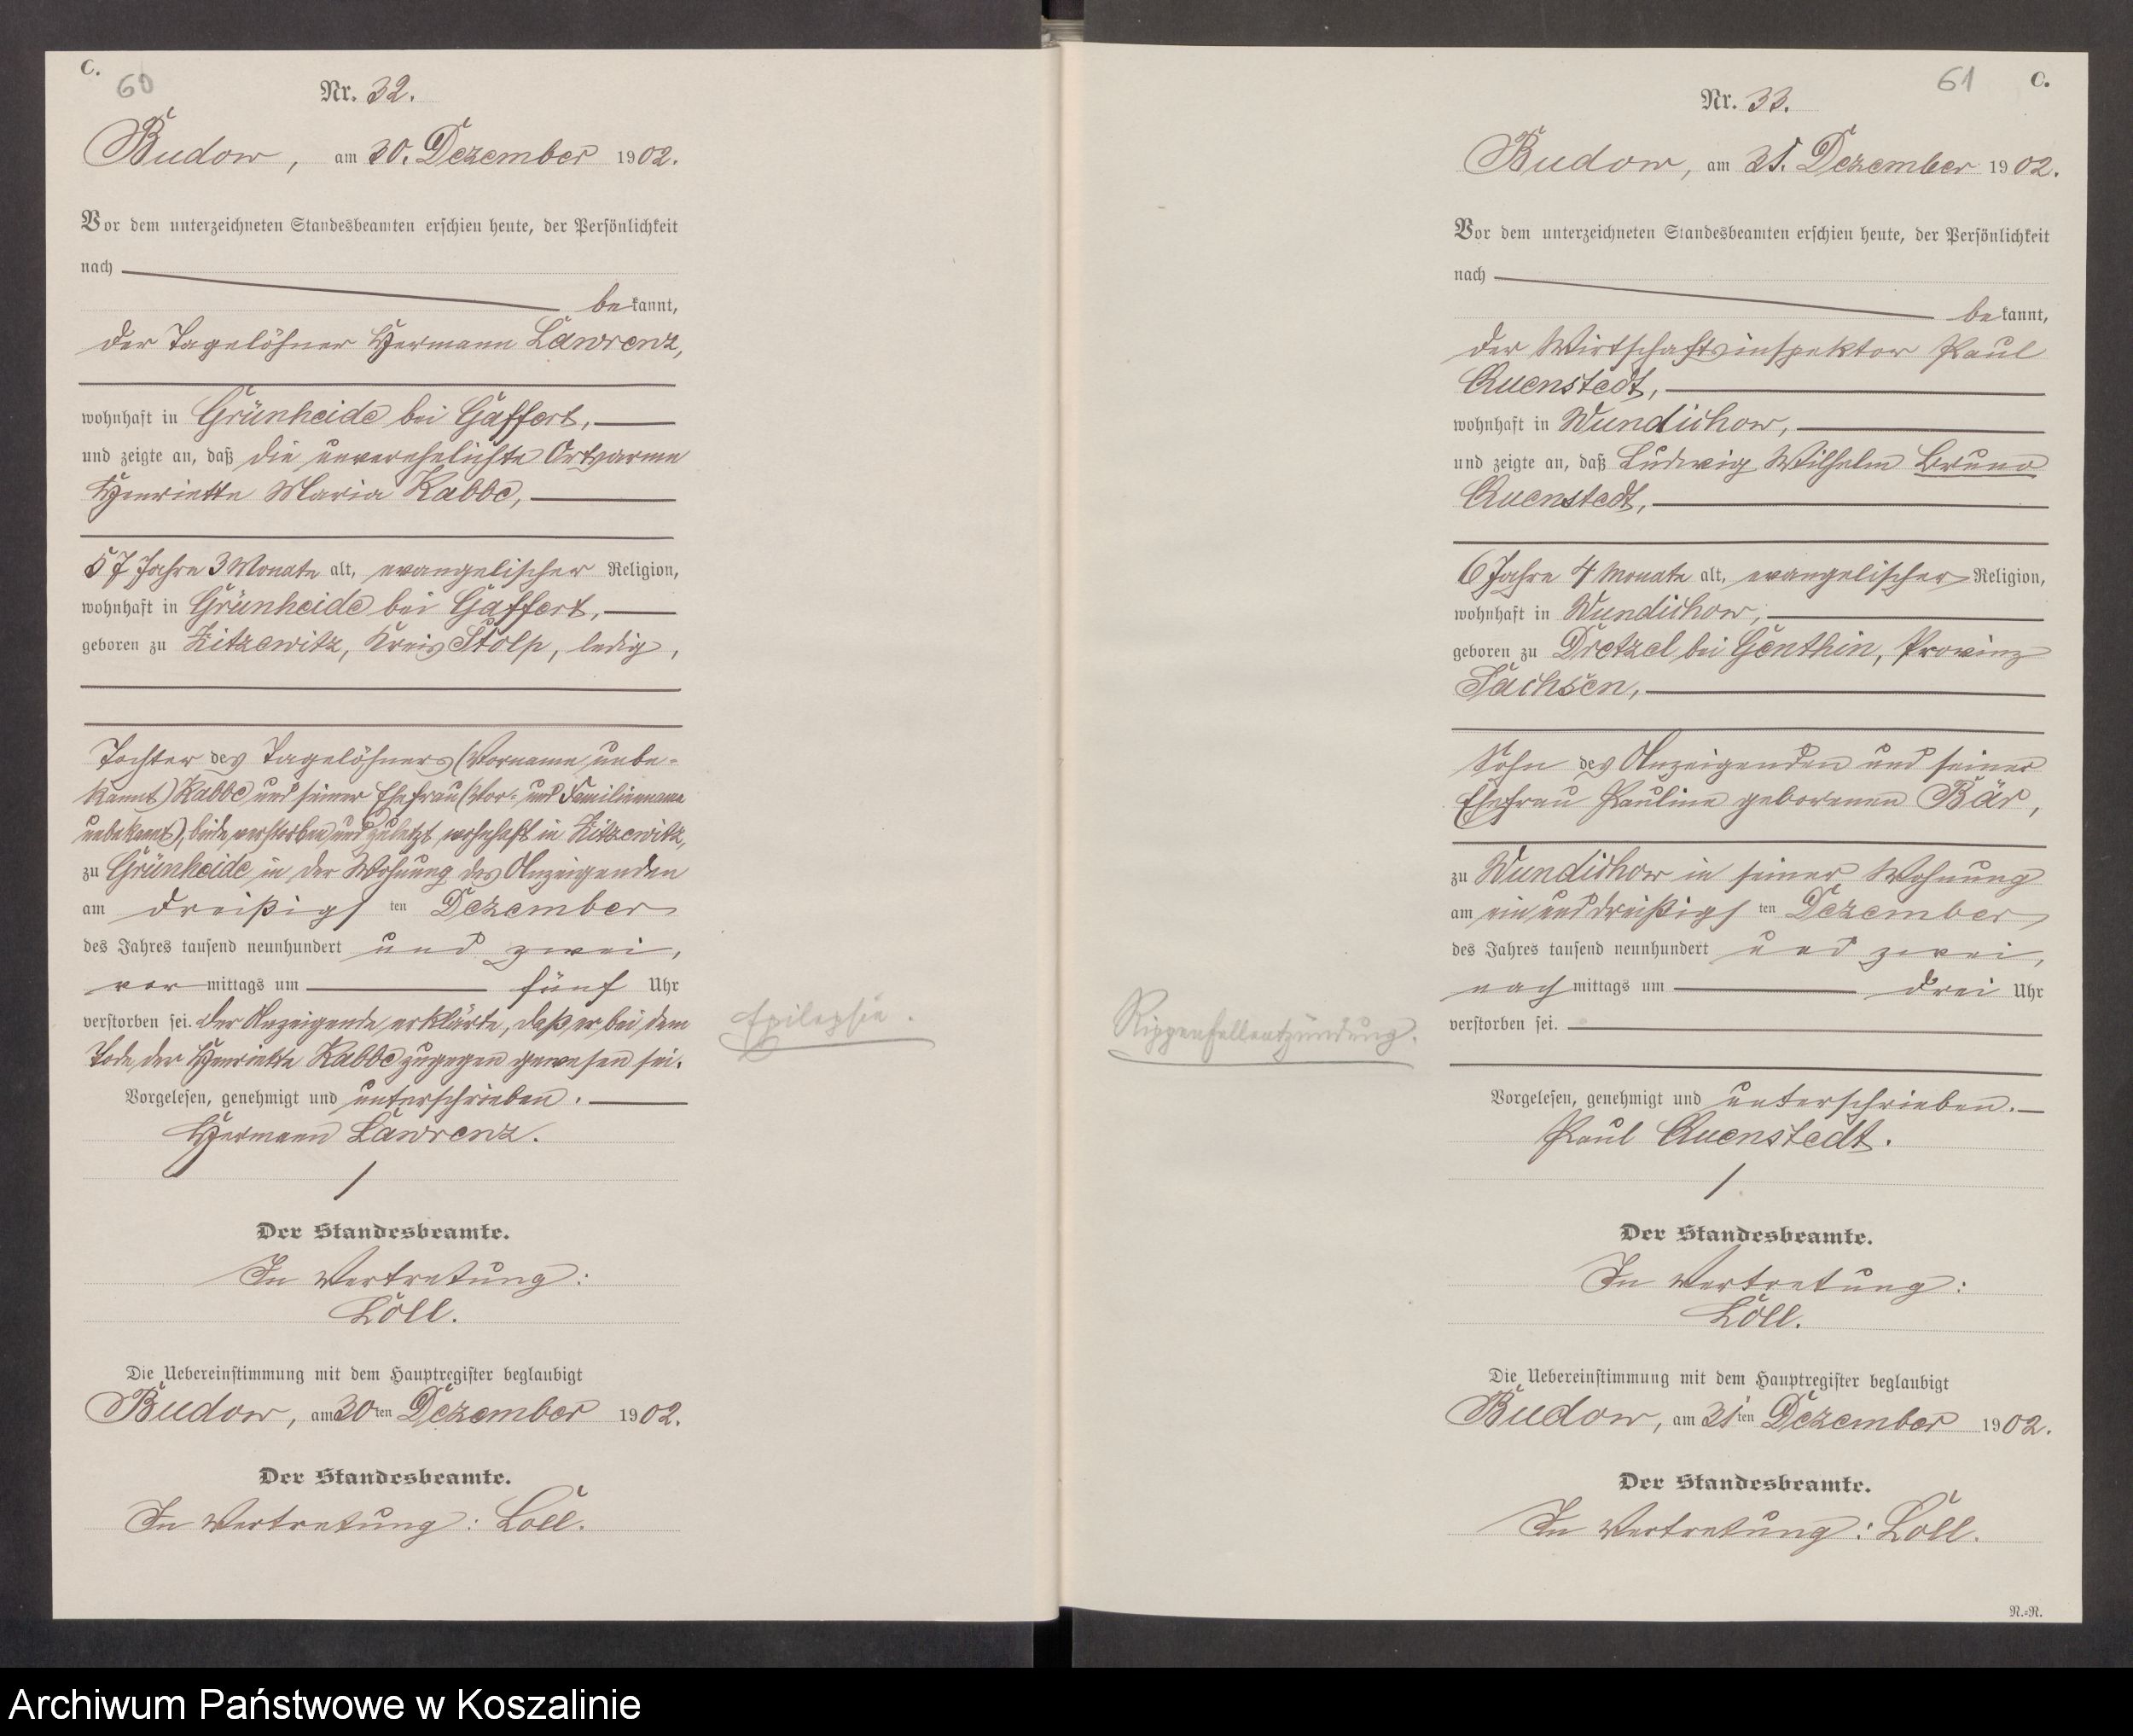 C.
60
Nr. 32.
Budow, am 30. Dezember 1902.
Vor dem unterzeichneten Standesbeamten erschien heute, der Persönlichkeit
nach
bekannt,
der Tagelöhner Hermann Lawrenz,
wohnhaft in Grünheide bei Gaffert,
und zeigte an, daß die unverehelichte Ortsarme
Henriette Maria Kabbe,
57 Jahre 3 Monate alt, evangelischer Religion,
wohnhaft in Grünheide bei Gaffert,
geboren zu Zitzewitz, Kreis Stolp, ledig,
Tochter des Tagelöhners (Vorname unbe-
kannt) Kabbe und seiner Ehefrau (Vor- und Familienname
unbekannt), beide verstorben und zuletzt wohnhaft in Zitzewitz,
zu Grünheide in der Wohnung des Anzeigenden
am dreißigsten Dezember
des Jahres tausend neunhundert und zwei,
vormittags um fünf Uhr
verstorben sei. Der Anzeigende erklärte, daß er bei dem
Tode der Henriette Kabbe zugegen gewesen sei.
Vorgelesen, genehmigt und unterschrieben.
Hermann Lawrenz.
Der Standesbeamte.
In Vertretung:
Löll.
Die Uebereinstimmung mit dem Hauptregister beglaubigt
Budow, am 30ten Dezember 1902.
Der Standesbeamte.
In Vertretung: Löll.
Epilepsie.
61
C.
Nr. 33.
Budow, am 31. Dezember 1902.
Vor dem unterzeichneten Standesbeamten erschien heute, der Persönlichkeit
nach
bekannt,
der Wirtschaftsinspektor Paul
Quenstedt,
wohnhaft in Wundichow,
und zeigte an, daß Ludwig Wilhelm Bruno
Quenstedt,
6 Jahre 4 Monate alt, evangelischer Religion,
wohnhaft in Wundichow,
geboren zu Dretzel bei Genthin, Provinz
Sachsen,
Sohn des Anzeigenden und seiner
Ehefrau Pauline geborenen Bär,
zu Wundichow in seiner Wohnung
am einunddreißigsten Dezember
des Jahres tausend neunhundert und zwei,
nachmittags um drei Uhr
verstorben sei.
Rippenfellentzündung.
Vorgelesen, genehmigt und unterschrieben.
Paul Quenstedt.
Der Standesbeamte.
In Vertretung:
Löll.
Die Uebereinstimmung mit dem Hauptregister beglaubigt
Budow, am 31ten Dezember 1902.
Der Standesbeamte.
In Vertretung: Löll.
N.=N.
Archiwum Państwowe w Koszalinie